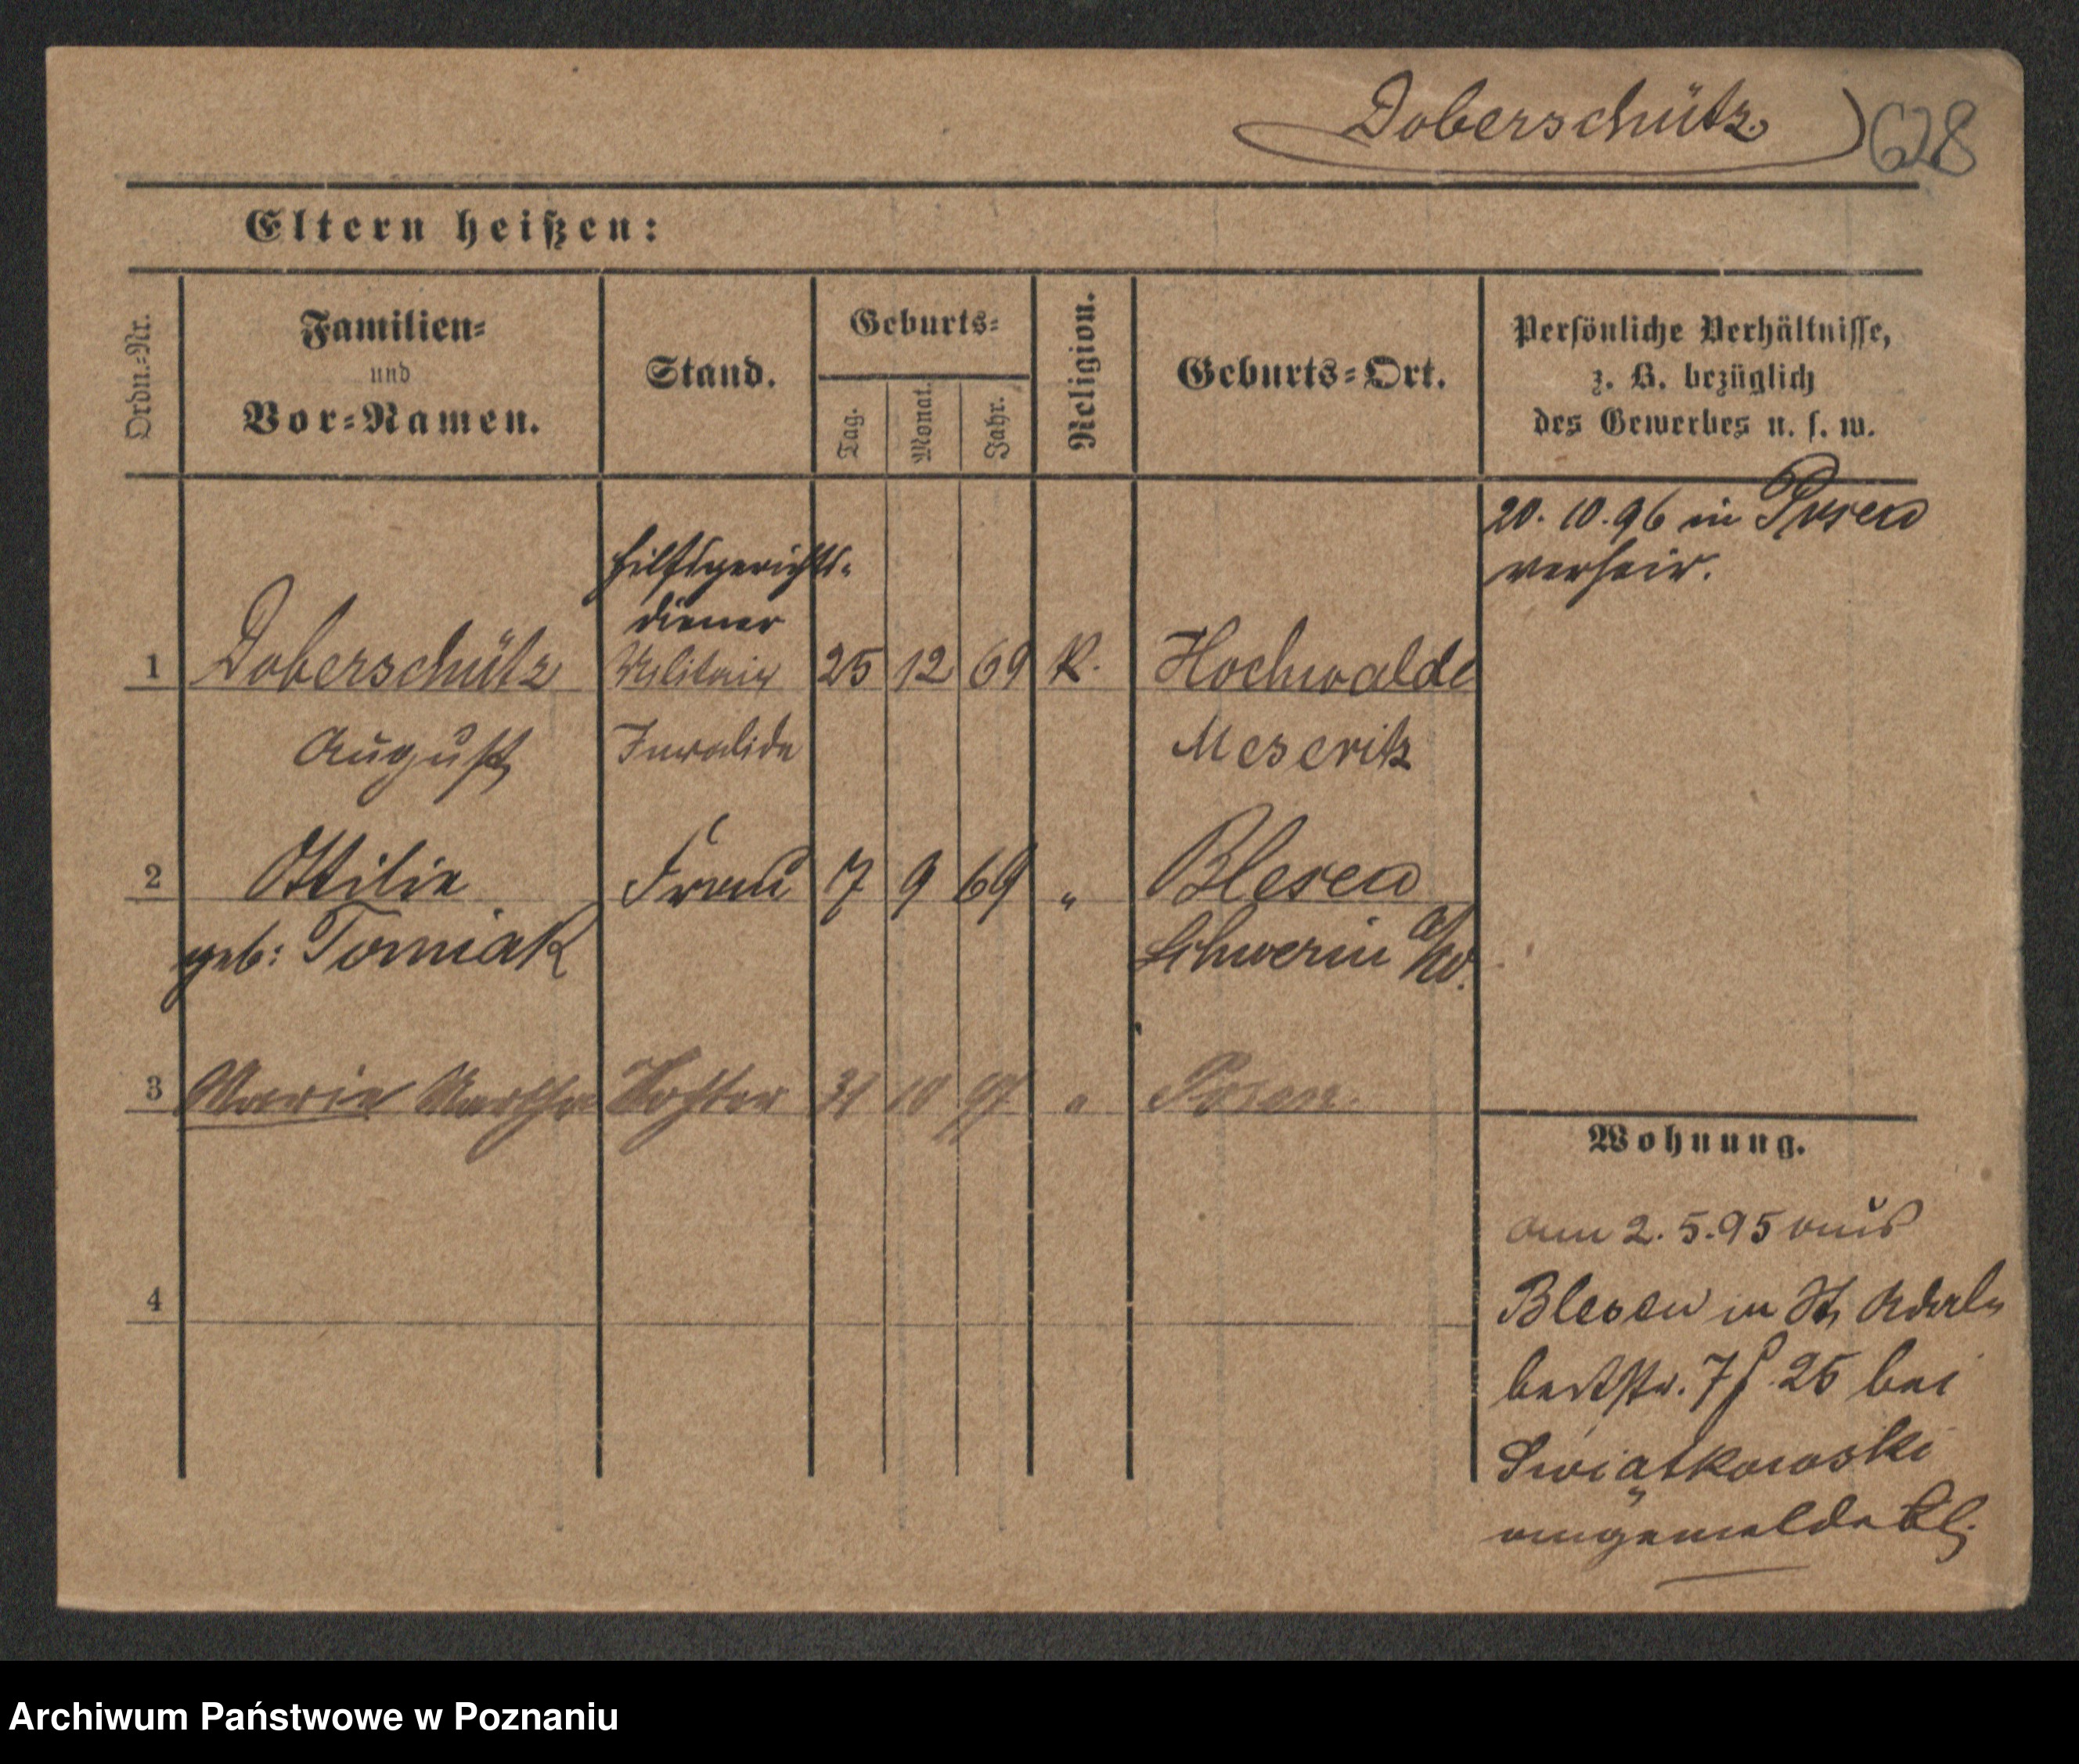 Doberschütz
628
Eltern heißen:
Ordn.-Nr.
Familien-
und
Vor-Namen.
Stand.
Geburts-
Tag.
Monat.
Jahr.
Religion.
Geburts-Ort.
Persönliche Verhältnisse,
z. B. bezüglich
des Gewerbes u. s. w.
20. 10. 96 in Posen
verheir.
Hilfsgerichts-
diener
1 Doberschütz Militair 25 12 69 K. Hochwalde
August Invalide Meseritz
2 Ottilie Frau 7 9 69 " Blesen
geb: Tomiak Schwerin a/W.
3 Marie Martha Tochter 31 10 97 " Posen.
Wohnung.
am 2. 5. 95 aus
Blesen in St. Adal-
bertstr. 7 25 bei
Swiątkowski
angemeldet
4
Archiwum Państwowe w Poznaniu